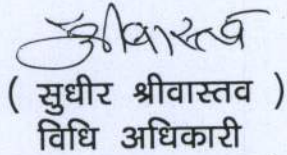 श्रीवास्तव
( सुधीर श्रीवास्तव )
विधि अधिकारी